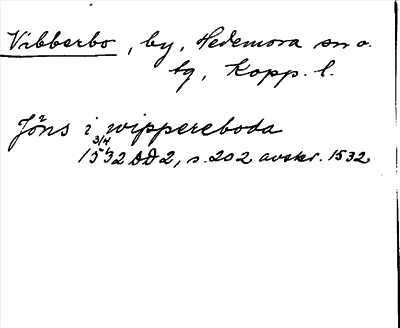 Vibberbo, by, Hedemora sn o.
tg, Kopp. l.
Jöns i wippereboda
3/4
1532 DD 2, s. 202 avskr. 1532